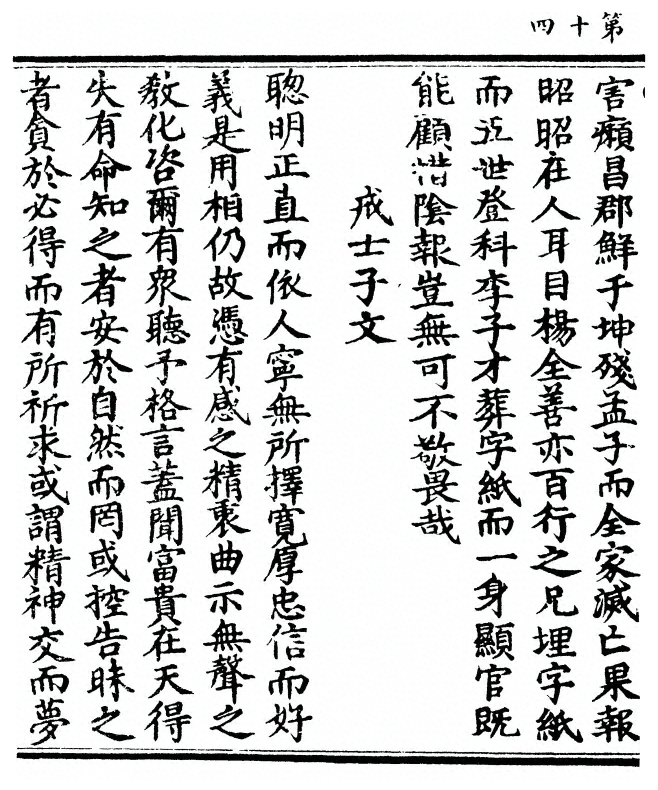 第十四
害癩昌郡鮮于坤殘孟子而全家滅亡果報
昭昭在人耳目楊全善亦百行之兄埋字紙
而五世登科李子才葬字紙而一身顯官既
能顧惜陰報豈無可不敬畏哉
戒士子文
聰明正直而依人寧無所擇寬厚忠信而好
義是用相仍故憑有感之精衷曲示無聲之
教化咨爾有衆聽予格言蓋聞富貴在天得
失有命知之者安於自然而罔或控告昧之
者貪於必得而有所祈求或謂精神交而夢